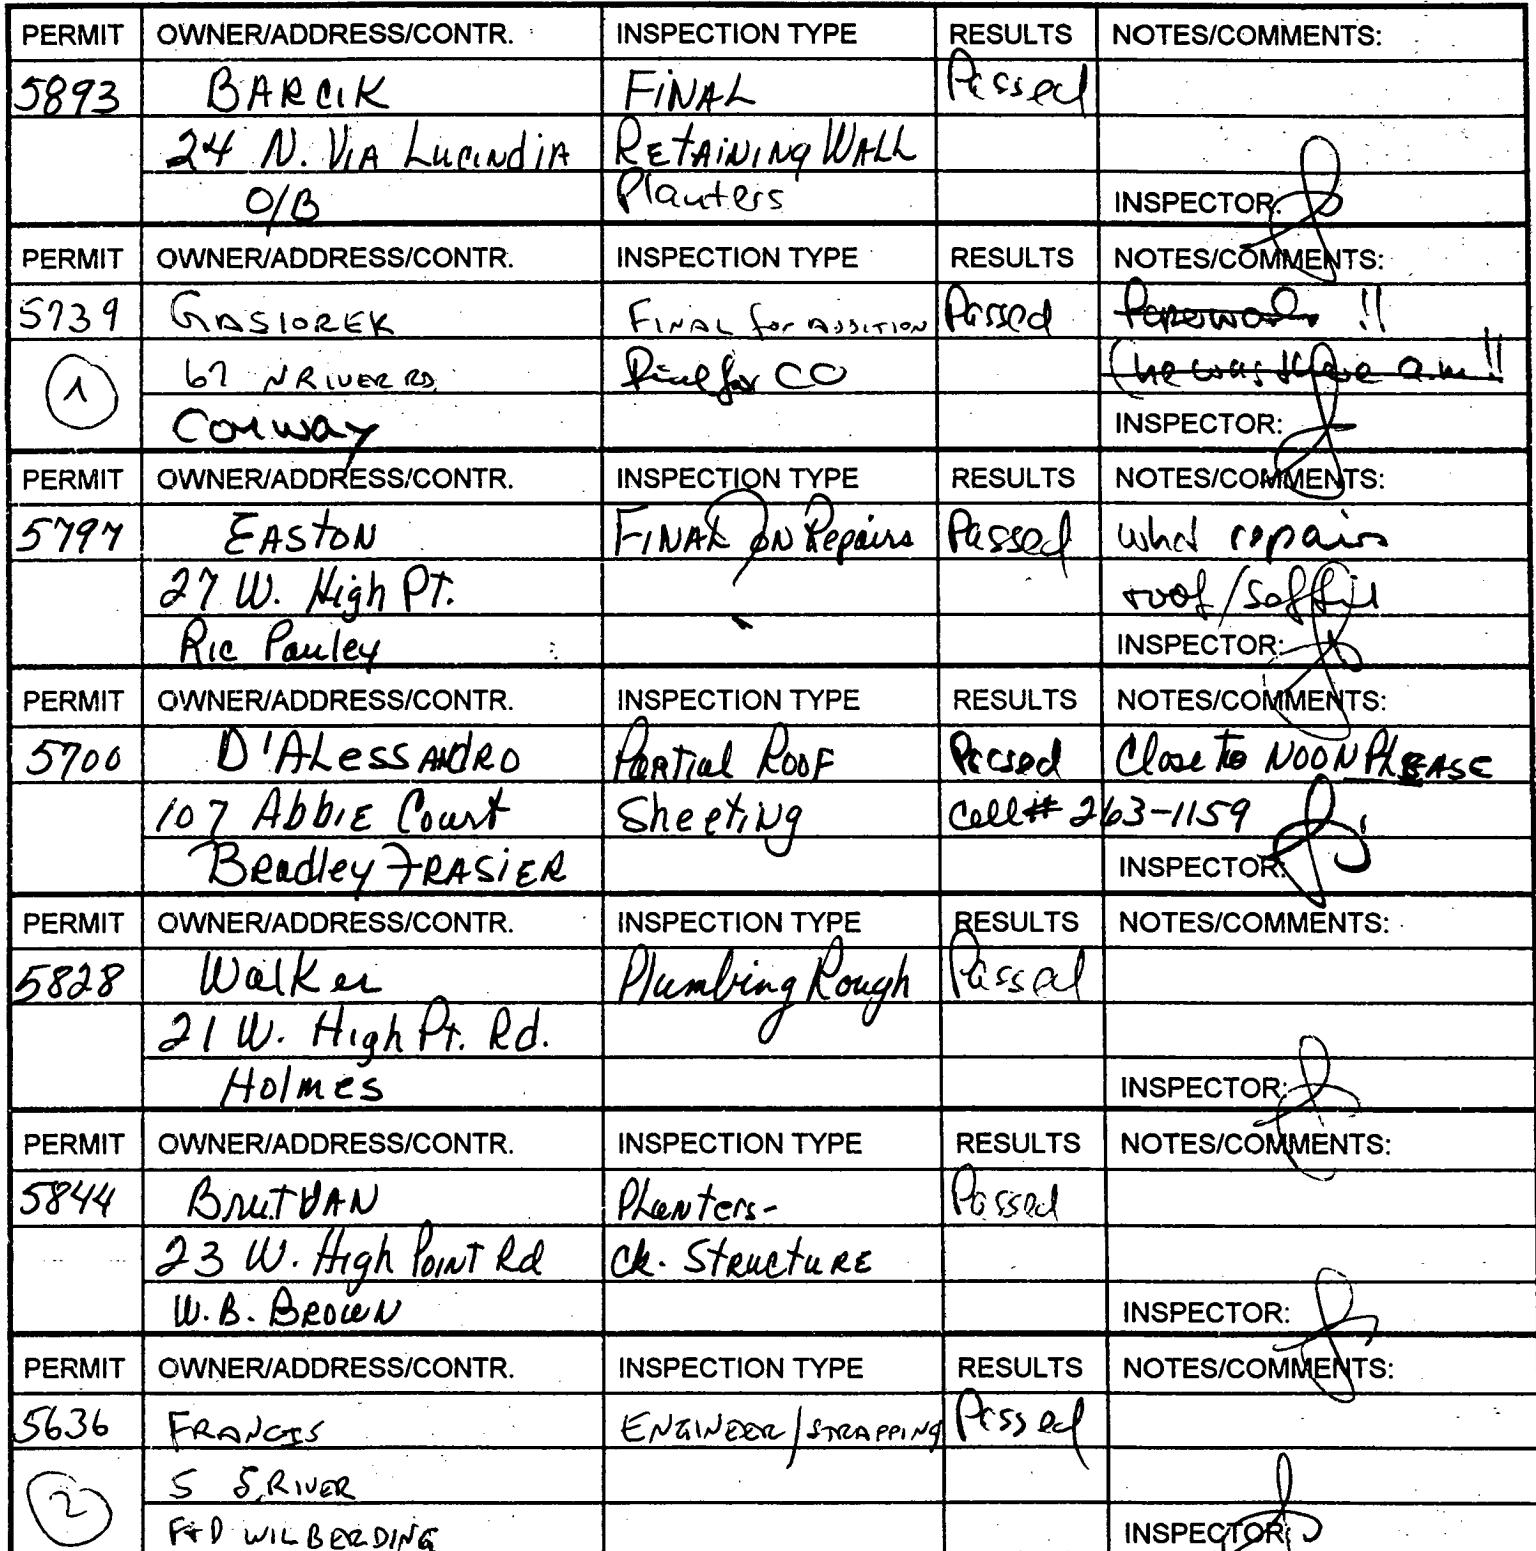 PERMIT OWNER/ADDRESS/CONTR. INSPECTION TYPE RESULTS NOTES/COMMENTS:
5893 BARCIK FINAL Passed
24 N. VIA LUCINDIA RETAINING WALL
O/B Planters INSPECTOR:
PERMIT OWNER/ADDRESS/CONTR. INSPECTION TYPE RESULTS NOTES/COMMENTS:
5739 GASIOREK FINAL for ADDITION Passed !!
1 67 N RIVER RD. Final for CO (he was there a.m!!
Conway INSPECTOR:
PERMIT OWNER/ADDRESS/CONTR. INSPECTION TYPE RESULTS NOTES/COMMENTS:
5797 EASTON FINAL ON Repairs Passed what repairs
27 W. High PT. roof/soffit
Ric Pauley INSPECTOR:
PERMIT OWNER/ADDRESS/CONTR. INSPECTION TYPE RESULTS NOTES/COMMENTS:
5700 D'ALESSANDRO PARTIAL ROOF Passed Close to NOON PLEASE
107 ABBIE Court Sheeting Cell# 263-1159
Bradley FRASIER INSPECTOR:
PERMIT OWNER/ADDRESS/CONTR. INSPECTION TYPE RESULTS NOTES/COMMENTS:
5828 Walker Plumbing Rough Passed
21 W. High Pt. Rd.
Holmes INSPECTOR:
PERMIT OWNER/ADDRESS/CONTR. INSPECTION TYPE RESULTS NOTES/COMMENTS:
5844 BRUTVAN Planters- Passed
23 W. High POINT Rd ck. STRUCTURE
W.B. BROWN INSPECTOR:
PERMIT OWNER/ADDRESS/CONTR. INSPECTION TYPE RESULTS NOTES/COMMENTS:
5636 FRANCIS ENGINEER/STRAPPING Passed
2 5 S. RIVER
F+D WILBERDING INSPECTOR: